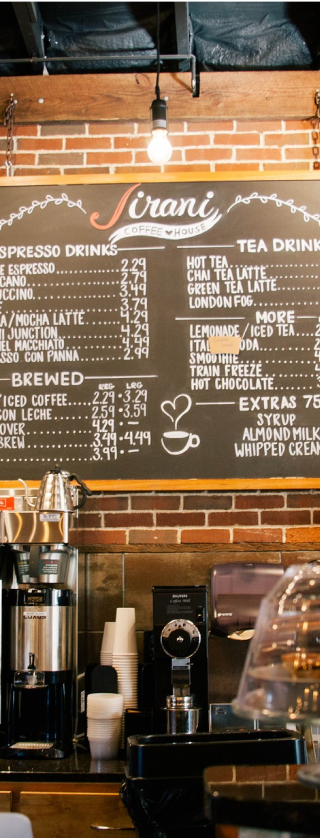 Jirani
COFFEE HOUSE
SPRESSO DRINKS
E ESPRESSO 2.29
CANO 2.79
UCCINO 3.49
3.79
A/MOCHA LATTE 4.29
NI JUNCTION 4.29
EL MACCHIATO 4.49
SSO CON PANNA 2.99
BREWED
REG LRG
ICED COFFEE 2.29 3.29
SON LECHE 2.59 3.59
OVER 4.29 -
BREW 3.49 4.49
3.99 -
TEA DRINK
HOT TEA
CHAI TEA LATTE
GREEN TEA LATTE
LONDON FOG
MORE
LEMONADE/ICED TEA 2
ITAL ODA
SMOOTHIE
TRAIN FREEZE
HOT CHOCOLATE
EXTRAS 75
SYRUP
ALMOND MILK
WHIPPED CREAM
BUNN